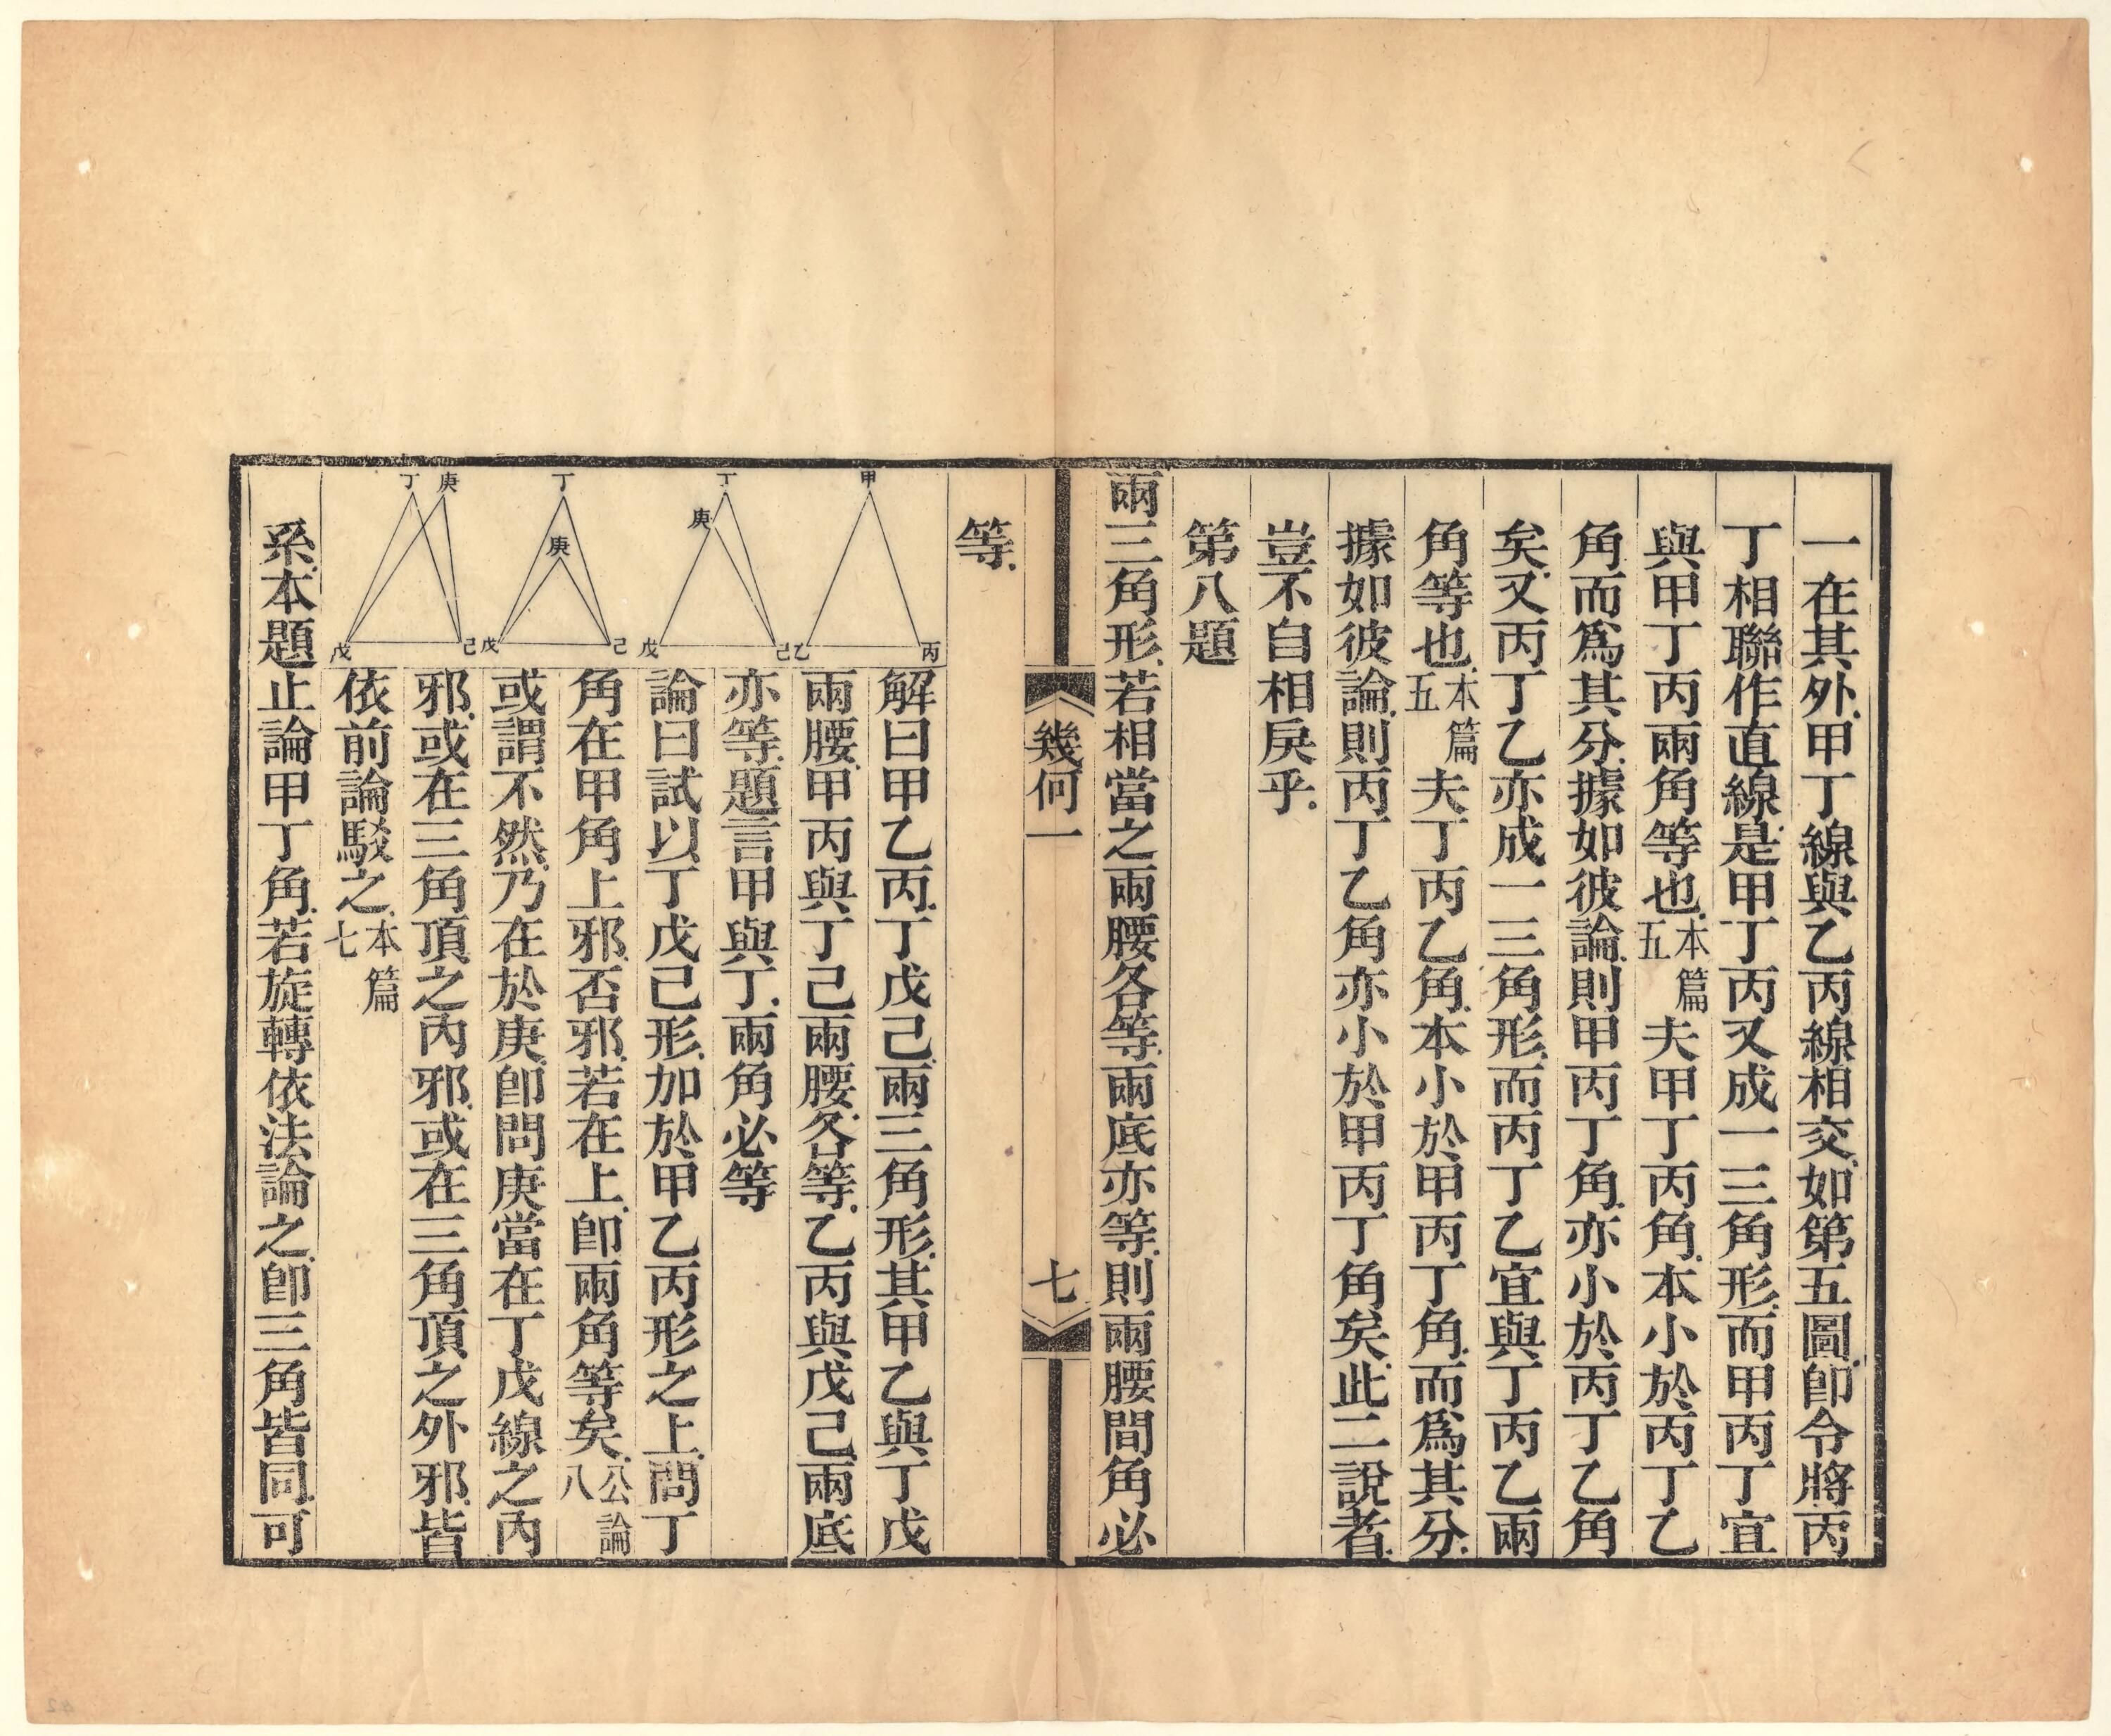 一在其外.甲丁線與乙丙線相交.如第五圖.卽令將丙
丁相聯作直線.是甲丁丙又成一三角形.而甲丙丁宜
與甲丁丙兩角等也.本篇五夫甲丁丙角.本小於丙丁乙
角而爲其分.據如彼論.則甲丙丁角.亦小於丙丁乙角
矣.又丙丁乙亦成一三角形.而丙丁乙宜與丁丙乙兩
角等也.本篇五夫丁丙乙角.本小於甲丙丁角.而爲其分.
據如彼論.則丙丁乙角亦小於甲丙丁角矣.此二說者.
豈不自相戾乎.
第八題
兩三角形.若相當之兩腰各等.兩底亦等.則兩腰間角必
幾何一
七
等.
甲
乙
丙
丁
庚
戊
己
丁
庚
戊
己
丁
庚
戊
己
解曰甲乙丙.丁戊己.兩三角形.其甲乙與丁戊
兩腰.甲丙與丁己兩腰.各等.乙丙與戊己.兩底
亦等.題言甲與丁.兩角必等
論曰試以丁戊己形.加於甲乙丙形之上.問丁
角在甲角上邪.否邪.若在上.卽兩角等矣.公論八
或謂不然.乃在於庚.卽問庚當在丁戊線之內
邪.或在三角頂之內邪.或在三角頂之外邪.皆
依前論駁之.本篇七
系.本題止論甲丁角.若旋轉依法論之.卽三角皆同.可